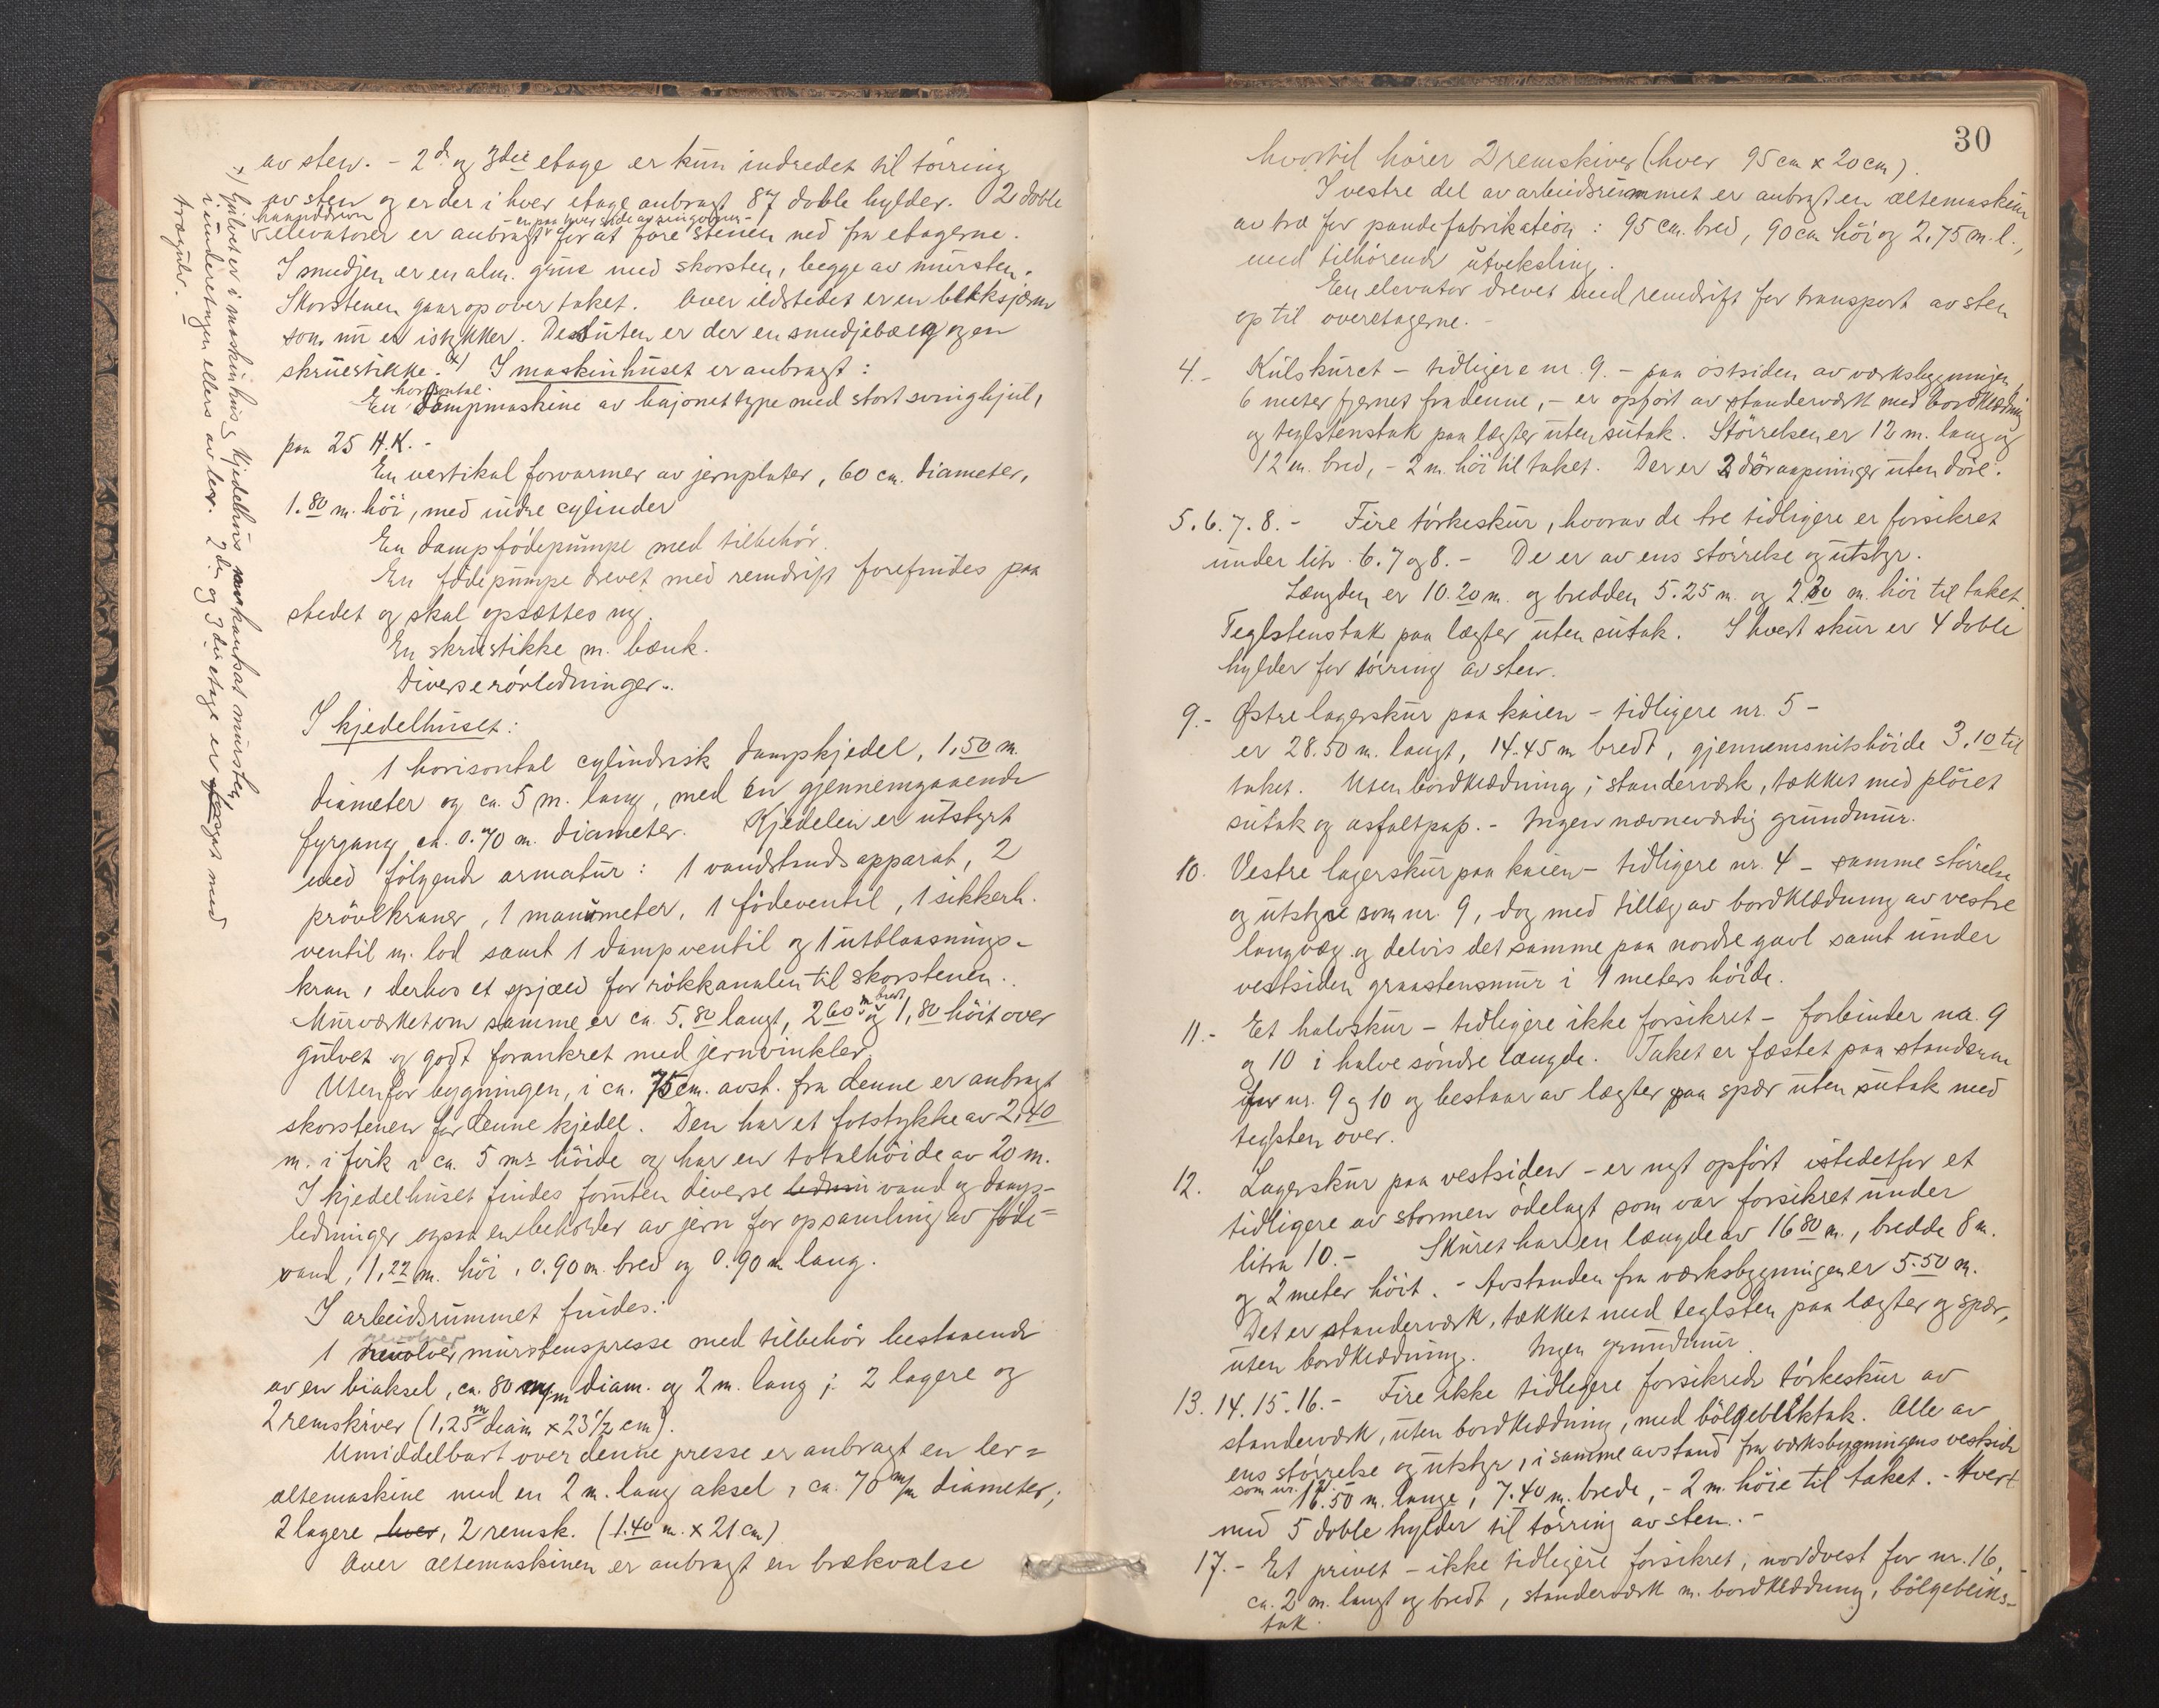 av sten. - 2de og 3die etage er kun indredet til törring
av sten og er der i hver etage anbragt 87 doble hylder. 2 doble
haanddrevn - en paa hver side av ringovnen -
elevatorer er anbragt for at före stenen ned fra etagerne.
I smedjen er en alm. grue med skorsten, begge av mursten.
Skorstenen gaar op over taket. Over ildstedet er en blikskjærm
som nu er istykker. Desuten er der en smedjebælg og en
skruestikke. x) I maskinhuset er anbragt:
horisontal
En dampmaskine av bajonettype med stort svinghjul,
paa 25 H.K. -
En vertikal forvarmer av jernplater, 60 cm. diameter,
1.80 m. höi, med indre cylinder
En dampfödepumpe med tilbehör.
En födepumpe drevet med remdrift forefindes paa
stedet og skal opsættes ny.
En skrustikke m. bænk.
Diverse rörledninger.
I kjedelhuset:
1 horisontal cylindrisk dampkjedel, 1,50 m.
diameter og ca. 5 m. lang, med en gjennemgaaende
fyrgang ca. 0.70 m. diameter. Kjedelen er utstyrt
med fölgende armatur: 1 vandstandsapparat, 2
prövekraner, 1 manometer, 1 födeventil, 1 sikkerh.
ventil m. lod samt 1 dampventil og 1 utblaasnings-
kran, derhos et spjæld for rökkanalen til skorstenen.
Murverket om samme er ca. 5.80 langt, 2.60 m. bredt og 1,80 höit over
gulvet og godt forankret med jernvinkler.
Utenfor bygningen, i ca. 75 cm. avst. fra denne er anbragt
skorstenen for denne kjedel. Den har et fotstykke av 2,40
m. i firk i ca. 5 mrs höide og har en totalhöide av 20 m.
I kjedelhuset findes foruten diverse vand og damp-
ledninger ogsaa en beholder av jern for opsamling av föde=
vand, 1,22 m. höi, 0.90 m. bred og 0.90 m lang.
I arbeidsrummet findes:
revolver
1 revolver murstenspresse med tilbehör bestaaende
av en biaksel, ca. 80 m/m diam. og 2 m. lang; 2 lagere og
2 remskiver (1,25 m diam x 23 1/2 cm).
Umiddelbart over denne presse er anbragt en ler=
æltemaskine med en 2 m. lang aksel, ca. 70 m/m diameter;
2 lagere hver, 2 remsk. (1.40 m. x 21 cm)
Over æltemaskinen er anbragt en brækvalse
x) Gulvet er i maskinhus og kjedelhus murkantsat mursten,
i underetagen ellers av ler. 2den og 3die etage er lagt med
trægulv.
30
hvortil hörer 2 remskiver (hver 95 cm x 20 cm).
I vestre del av arbeidsrummet er anbragt en æltemaskin
av træ for pandefabrikation: 95 cm. bred, 90 cm höi og 2,75 m. l.,
med tilhörende utveksling.
En elevator drevet med remdrift for transport av sten
op til overetagerne. -
4. - Kulskuret - tidligere nr. 9. - paa östsiden av værksbygningen,
6 meter fjernet fra denne, - er opfört av standerværk med bordklædning
og teglstenstak paa lægter uten sutak. Störrelsen er 12 m. lang og
12 m. bred, - 2 m. höi til taket. Der er 2 döraapninger uten döre.
5. 6. 7. 8. - Fire törkeskur, hvorav de tre tidligere er forsikret
under litr. 6. 7 og 8. - De er av ens störrelse og utstyr.
Længden er 10.20 m. og bredden 5.25 m. og 2.30 m. höi til taket.
Teglstenstak paa lægter uten sutak. I hvert skur er 4 doble
hylder for törring av sten.
9. - Östre lagerskur paa kaien - tidligere nr. 5 -
er 28.50 m. langt, 14.45 m bredt, gjennemsnitshöide 3.10 til
taket. Uten bordklædning, i standerværk, tækket med plöiet
sutak og asfaltpap. - Ingen nævneværdig grundmur.
10. Vestre lagerskur paa kaien - tidligere nr. 4 - samme störrelse
og utstyr som nr. 9, dog med tillæg av bordklædning av vestre
langvæg og delvis det samme paa nordre gavl samt under
vestsiden graastensmur i 1 meters höide.
11. - Et halvskur - tidligere ikke forsikret - forbinder nr. 9
og 10 i halve söndre længde. Taket er fæstet paa standerne
for nr. 9 og 10 og bestaar av lægter paa spær uten sutak med
teglsten over.
12. Lagerskur paa vestsiden - er nyt opfört istedetfor et
tidligere av stormen ödelagt som var forsikret under
litra 10. - Skuret har en længde av 16.80 m., bredde 8 m.
og 2 meter höit. - Avstanden fra værksbygningen er 5.50 m.
Det er standerværk, tækket med teglsten paa lægter og spær,
uten bordklædning. Ingen grundmur.
13. 14. 15. 16. - Fire ikke tidligere forsikrede törkeskur av
standerværk, uten bordklædning, med bölgebliktak. Alle av
ens störrelse og utstyr, i samme avstand fra værksbygningens vestside
som nr. 12.
16.50 m. lange, 7.40 m. brede, - 2 m. höie til taket. - Hvert
med 5 doble hylder til törring av sten. -
17. - Et privet - ikke tidligere forsikret, nordvest for nr. 16,
ca. 2 m. langt og bredt, standerværk m. bordklædning, bölgebliks-
tak